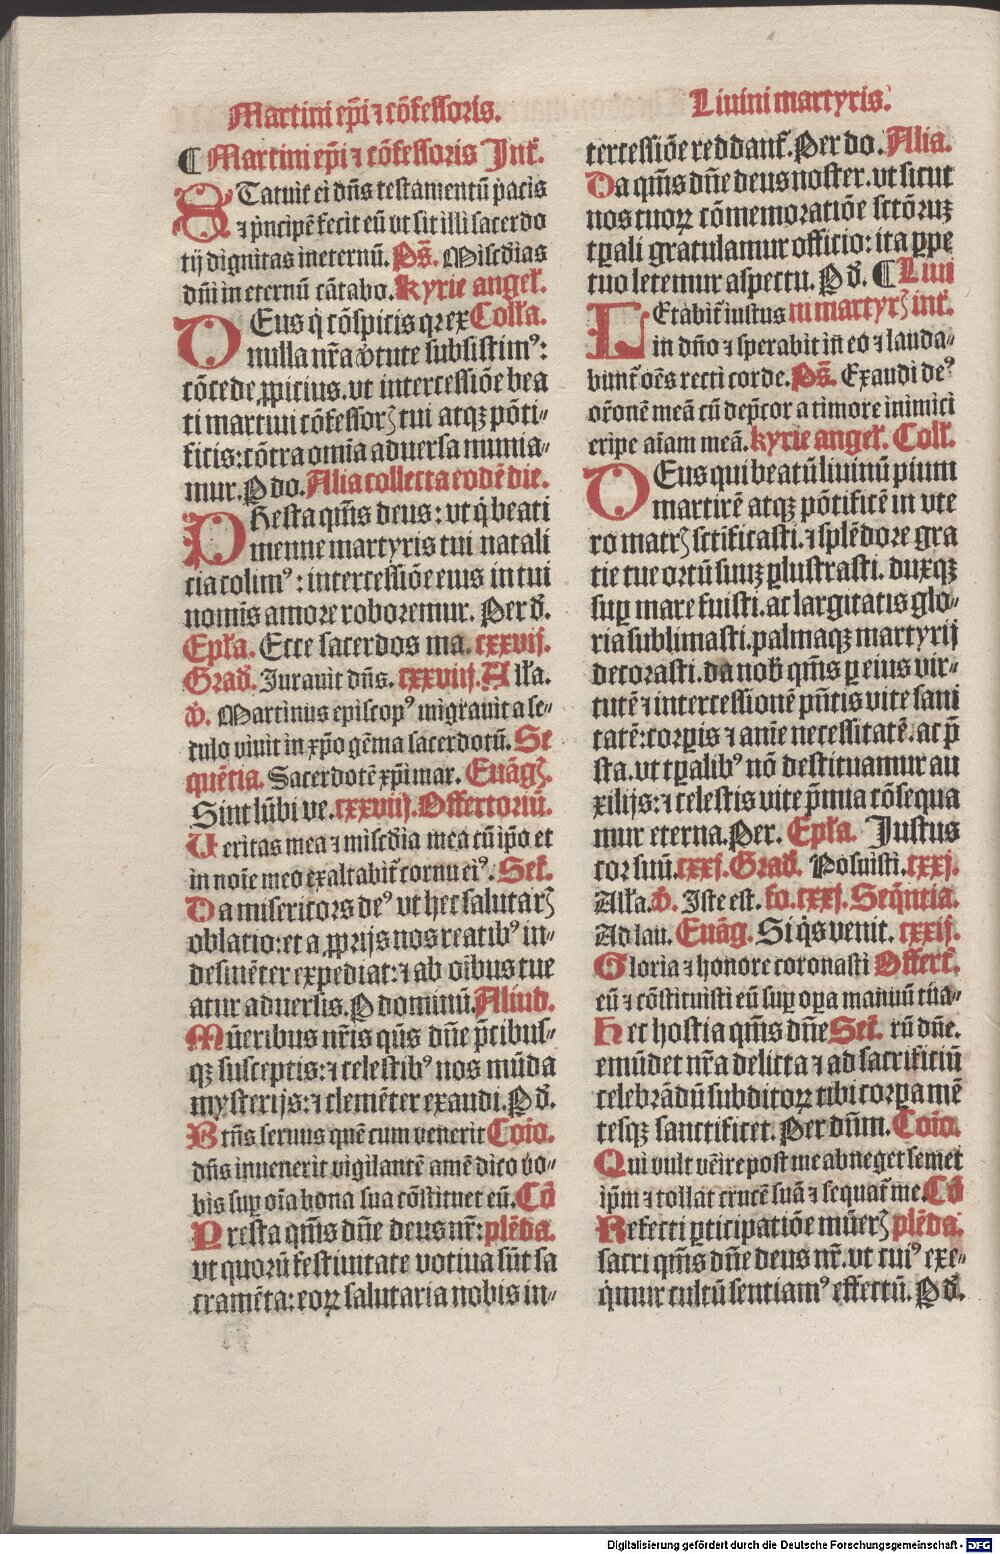 Martini ep̄i ⁊ cōfessoris.
Liuini martyris.
¶ Martini ep̄i ⁊ cōfessoris Int̄.
STatuit ei dn̄s testamentū pacis
⁊ pͥncipē fecit eū vt sit illi sacerdo
tij dignitas ineternū. Ps̄. Misc̄dias
dn̄i in eternū cātabo. kyrie angeł.
DEus qͥ cōspicis qꝛ ex Colła.
nulla nr̄a v̓tute subsistimꝰ:
cōcede ꝓpicius. vt intercessiōe bea
ti martini cōfessorꝭ tui atqꝫ pōti⸗
ficis: cōtra omīa aduersa munia⸗
mur. P do. Alia collecta eodē die.
PResta qm̄s deus: vt qͥ beati
menne martyris tui natali
cia colimꝰ: intercessiōe eius in tui
nomīs amore roboremur. Per d̄.
Epła. Ecce sacerdos ma. cxxvij.
Grad̄. Iurauit dn̄s. cxxviij. Alła.
v̓. Martinus episcopꝰ migrauit a se⸗
culo viuit in xp̄o gēma sacerdotū. Se
quētia. Sacerdotē xp̄i mar. Euāgꝭ.
Sint lūbi ve. cxxviij. Offertoriū.
Ueritas mea ⁊ misc̄dia mea cū ip̄o et
in noīe meo exaltabit̄ cornu eiꝰ. Sec̄.
Da misericors deꝰ vt hec salutarꝭ
oblatio: et a ꝓprijs nos reatibꝰ in⸗
desinēter expediat: ⁊ ab oībus tue
atur aduersis. P dominū. Aliud.
Mūeribus nr̄is qūs dn̄e p̄cibus⸗
qꝫ susceptis: ⁊ celestibꝰ nos mūda
mysterijs: ⁊ clemēter exaudi. P d̄.
Btn̄s seruus quē cum venerit Coīo.
dn̄s inuenerit vigilantē amē dico vo⸗
bis suꝑ oīa bona sua cōstituet eū. Cō
Presta qm̄s dn̄e deus nr̄: plēda.
vt quorū festiuitate votiua sūt sa
cramēta: eoꝝ salutaria nobis in⸗
tercessiōe reddant̄. Per do. Alia.
Da qm̄s dn̄e deus noster. vt sicut
nos tuoꝝ cōmemoratiōe sctōruꝫ
tꝑali gratulamur officio: ita ꝑpe
tuo letemur aspectu. P d̄. ¶ Liui
LEtabit̄ iustus ni martyrꝭ int̄.
in dn̄o ⁊ sperabit in eo ⁊ lauda⸗
bunt̄ oēs recti corde. Ps̄. Exaudi deꝰ
or̄onē meā cū dep̄cor a timore inimici
eripe aīam meā. kyrie angeł. Coll̄.
DEus qui beatū liuinū pium
martirē atqꝫ pōtificē in vte
ro matrꝭ sctificasti. ⁊ splēdore gra
tie tue ortū suuꝫ ꝑlustrasti. duxqꝫ
suꝑ mare fuisti. ac largitatis glo⸗
ria sublimasti. palmaqꝫ martyrij
decorasti. da nob̄ qm̄s ꝑ eius vir⸗
tutē ⁊ intercessionē pn̄tis vite sani
tatē: corꝑis ⁊ anīe necessitatē. ac p̄
sta. vt tꝑalibꝰ nō destituamur au
xilijs: ⁊ celestis vite p̄mia cōsequa
mur eterna. Per. Epła. Iustus
cor suū. cxxj. Grad̄. Posuisti. cxxj.
Alła. v̓. Iste est. fo. cxxj. Seq̄ntia.
Ad lau. Euāg. Si qͥs venit. cxxij.
Gloria ⁊ honore coronasti Offert̄.
eū ⁊ cōstituisti eū suꝑ oꝑa manuū tua⸗
Hec hostia qm̄s dn̄e Sec̄. rū dn̄e.
emūdet nr̄a delicta ⁊ ad sacrificiū
celebrādū subditoꝝ tibi corꝑa mē
tesqꝫ sanctificet. Per dn̄m. Coīo.
Qui vult vēire post me abneget semet
ip̄m ⁊ tollat crucē suā ⁊ sequat̄ me. Cō
Refecti ꝑticipatiōe mūerꝭ plēda.
sacri qm̄s dn̄e deus nr̄. vt cuiꝰ exe⸗
qͥmur cultū sentiamꝰ effectū. P d̄.
Digitalisierung gefördert durch die Deutsche Forschungsgemeinschaft - DFG